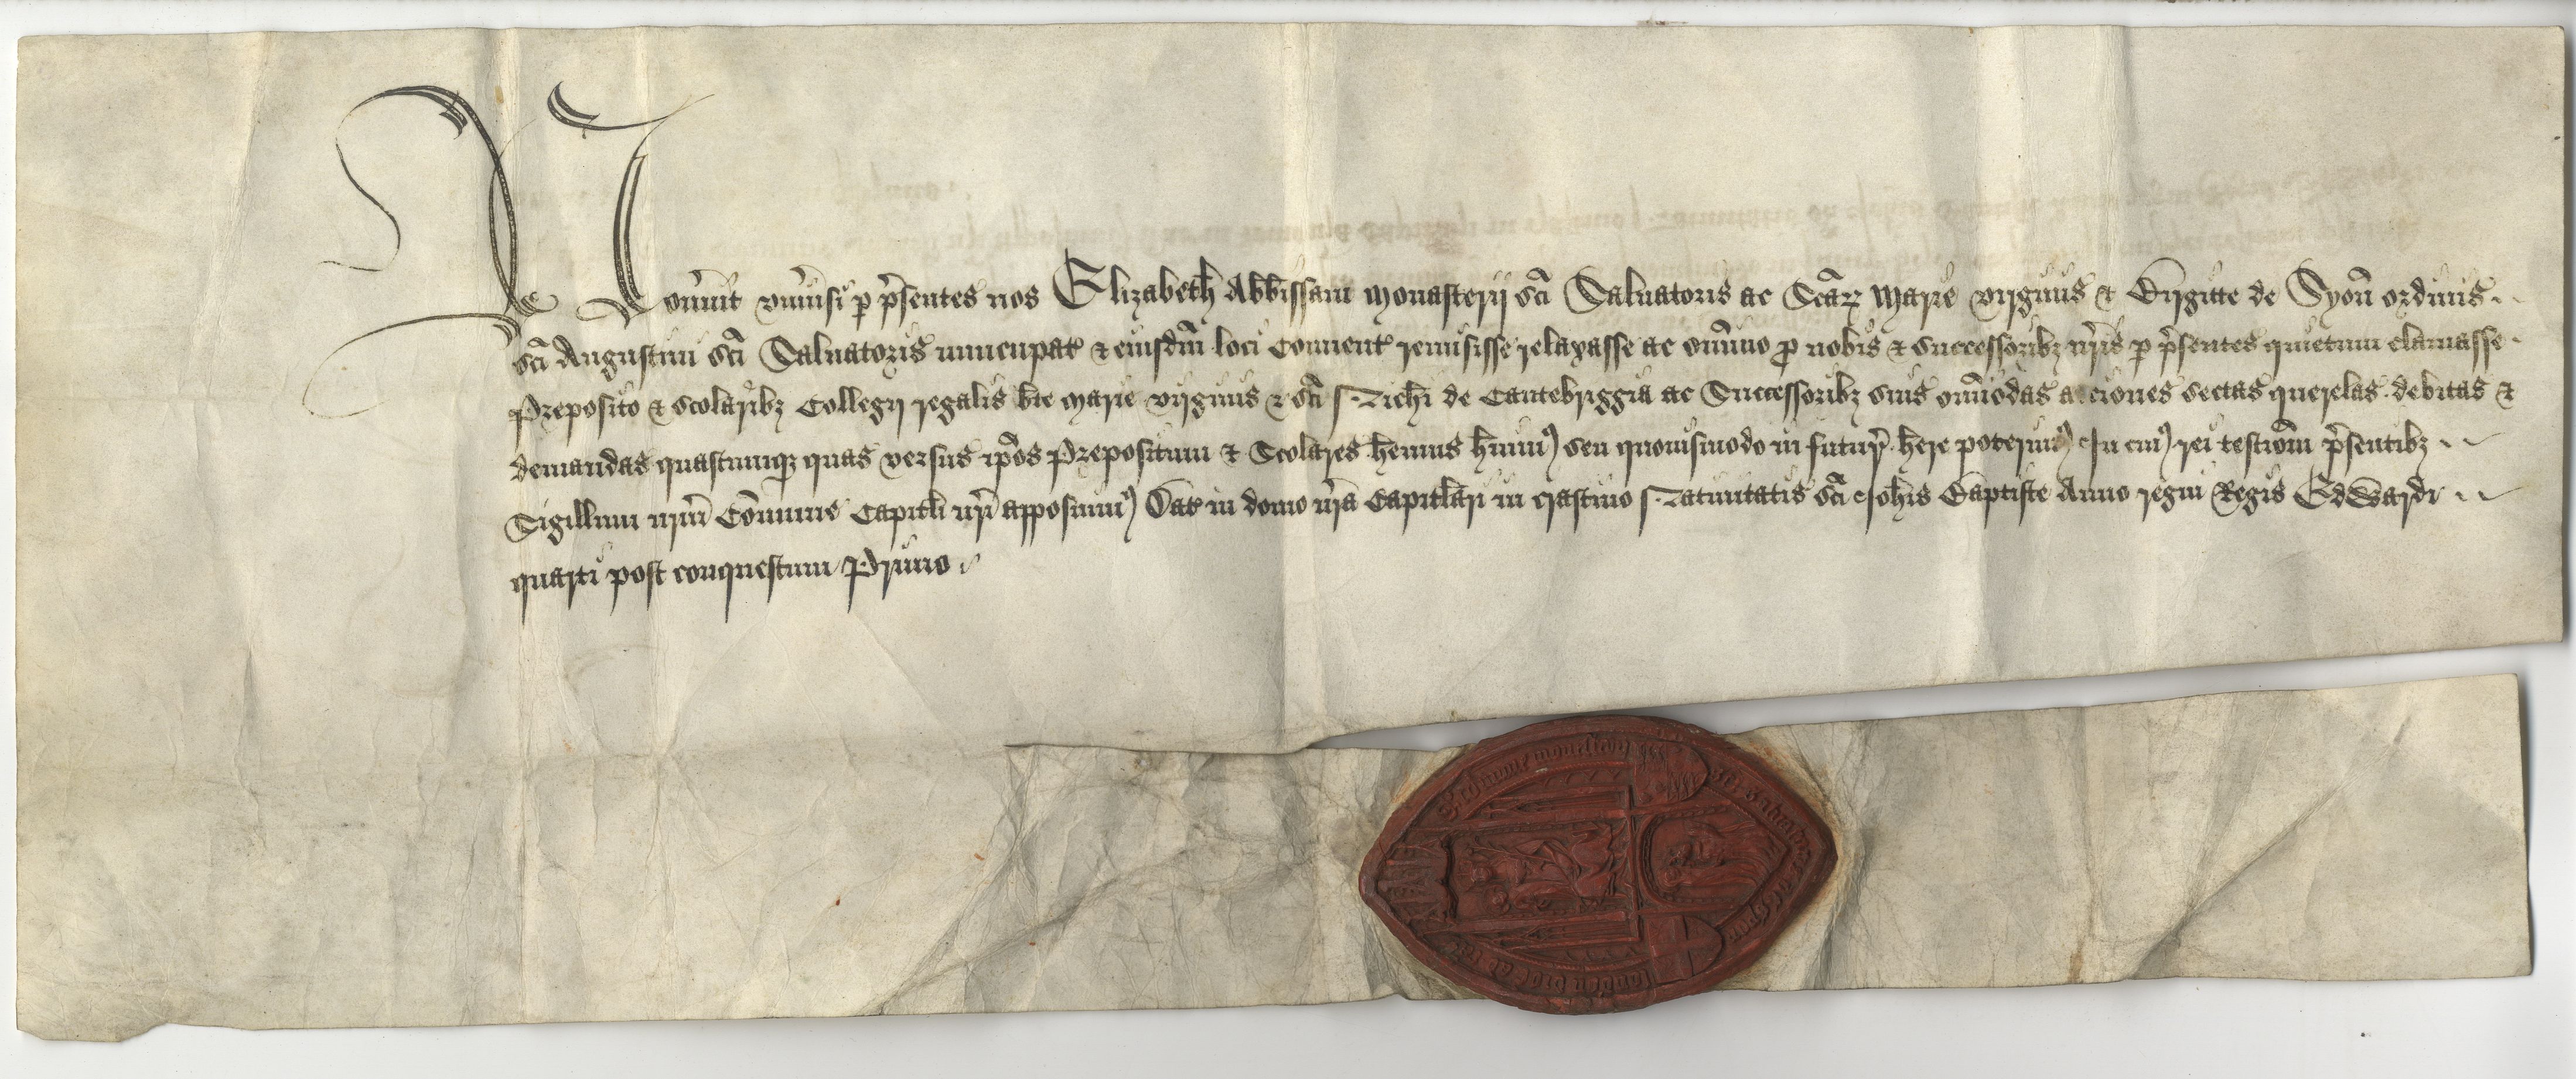 Nov̄int vniu̇si p p̄sentes nos Elizabeth Abb̄issam monasterij sc̄i Saluatoris ac Sc̄aꝝ Marie virginis & Birgitte de Syon̄ ordinis
sc̄i Augustini sc̄i Saluatoris nuncupat̉ & eiusdm̄ loci Conuent̉ remisisse relaxasse ac om̄ino ꝓ nobis & successoribꝫ nr̄is p p̄sentes quietum clamasse
Preposito & scolaribꝫ Collegij regalis bt̄e marie virginis & sc̄i Nich̄i de Cantebriggia ac Successoribꝫ suis om̄iodas acciones sectas querelas debitas &
demandas quascumqꝫ quas versus ip̄os Prepositum & Scolares h̄emus h̄uimꝰ seu quouismodo in futur̉ h̄ere poterimꝰ In cuiꝰ rei testioīm p̄sentibꝫ
Sigillum nr̄m Cōmune Capitl̄i nr̄i apposuimꝰ Dat̉ in domo nr̄a Capitl̄ari in crastino Natiuitatis sc̄i Joh̄is Baptiste Anno regni Regis Edwardi
quarti post conquestum Primo